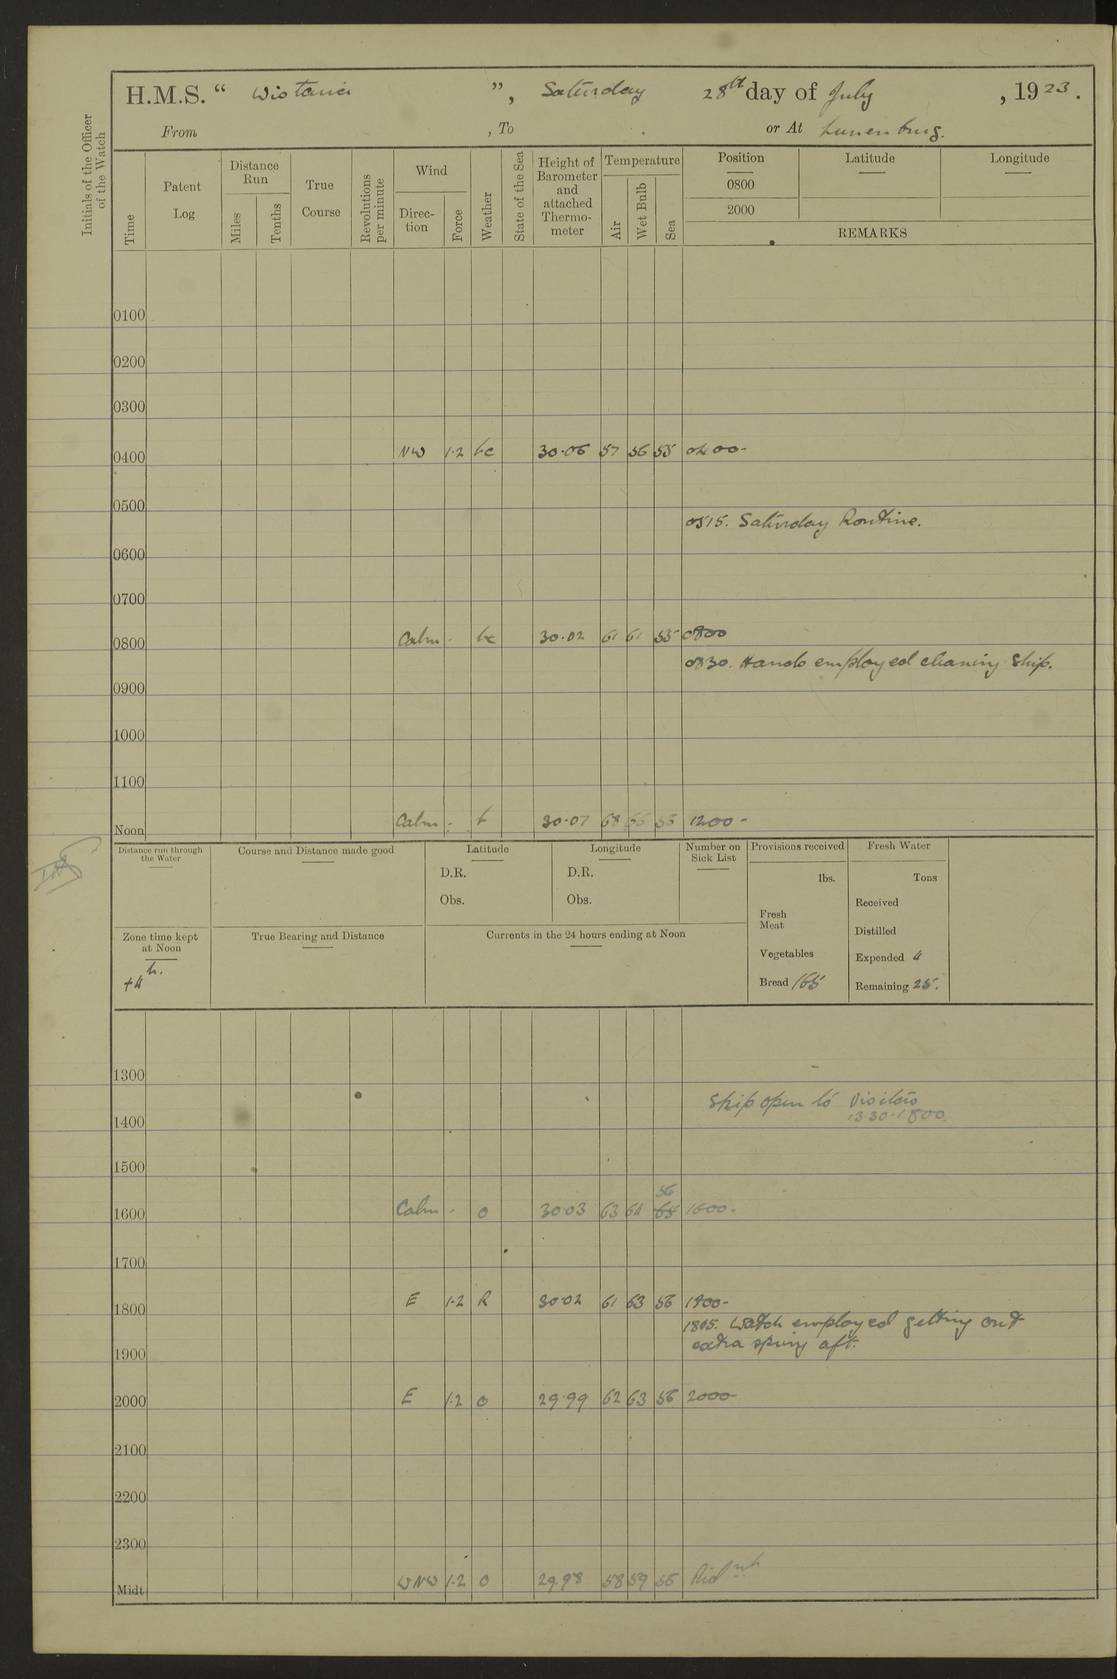 H.M.S. “ Wistaria ”, Saturday 28th day of July, 1923.
From , To . or At Lunenburg.
Initials of the Officer of the Watch
Time
Patent Log
Distance Run
Miles
Tenths
True Course
Revolutions per minute
Wind
Direction
Force
Weather
State of the Sea
Height of Barometer and attached Thermometer
Temperature
Air
Wet Bulb
Sea
Position
Latitude
Longitude
0800
2000
REMARKS
0100
0200
0300
0400 NW 1·2 bc 30·06 57 56 55 0400-
0500
0515. Saturday Routine.
0600
0700
0800 Calm - bc 30·02 61 61 55 0800
0830. Hands employed cleaning Ship.
0900
1000
1100
Noon Calm - b 30·07 68 66 55 1200-
Distance run through the Water
Course and Distance made good
Latitude
D.R.
Obs.
Longitude
D.R.
Obs.
Number on Sick List
Provisions received
lbs.
Fresh Meat
Vegetables
Bread 165
Fresh Water
Tons
Received
Distilled
Expended 4
Remaining 25.
Zone time kept at Noon
+4 h.
True Bearing and Distance
Currents in the 24 hours ending at Noon
1300
Ship open to Visitors
1330-1800.
1400
1500
56
1600 Calm - o 30·03 63 64 65 1600.
1700
1800 E 1·2 R 30·02 61 63 56 1800-
1805. Watch employed getting out
extra spring aft.
1900
2000 E 1·2 o 29·99 62 63 56 2000-
2100
2200
2300
Midt WNW 1·2 o 29.98 58 59 55